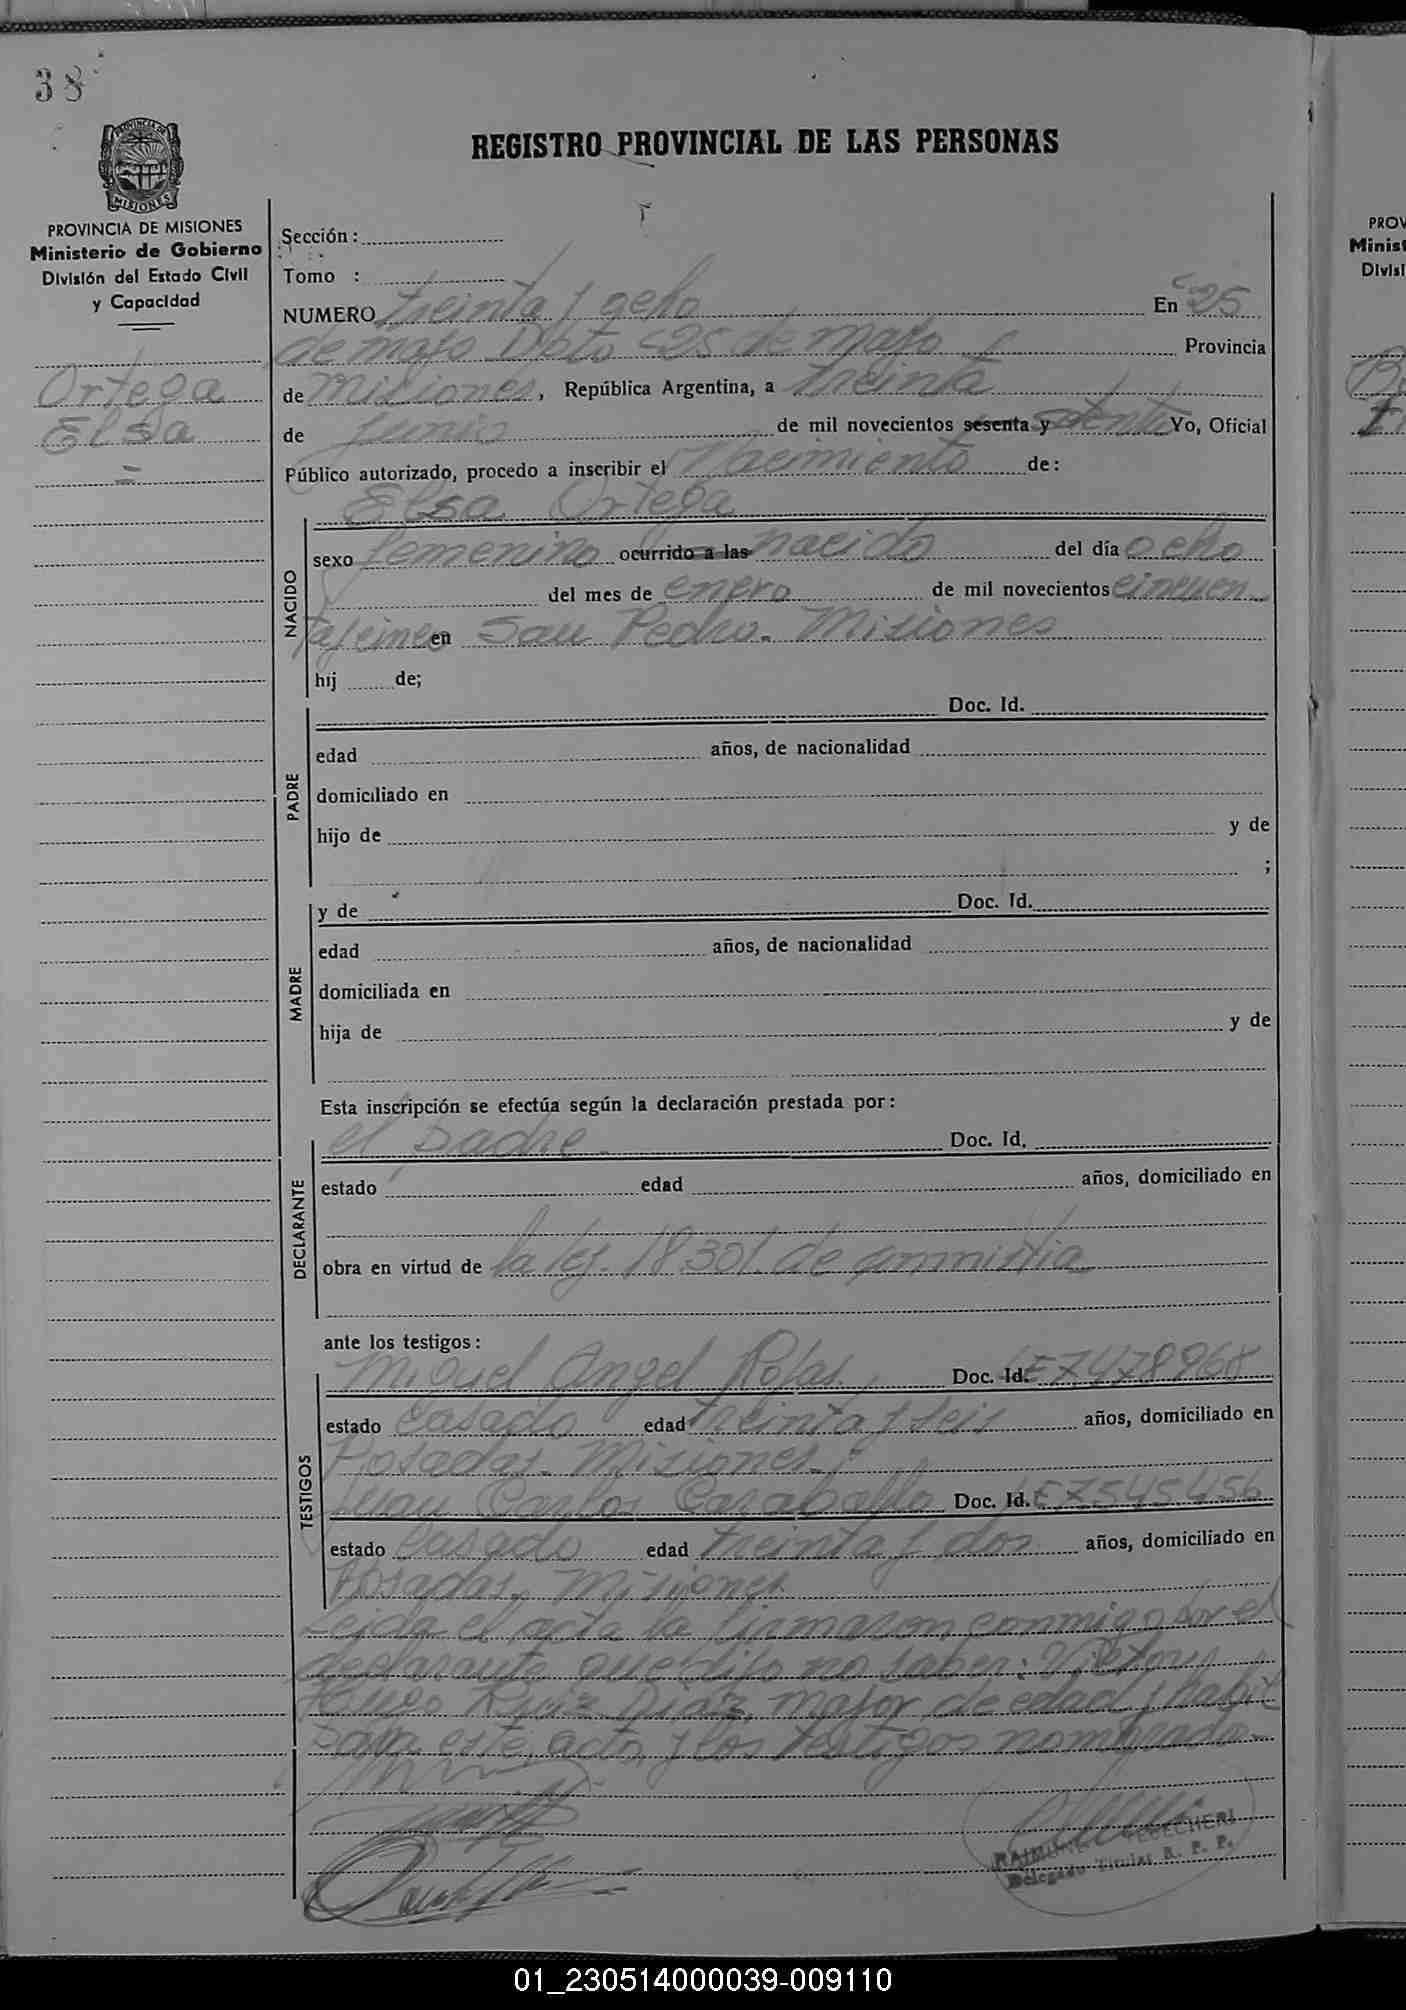 38
REGISTRO PROVINCIAL DE LAS PERSONAS
PROVINCIA DE MISIONES
Ministerio de Gobierno
División del Estado Civil
y Capacidad
Ortega
Elsa
Sección:
Tomo :
NUMERO treinta y ocho En 25
de mayo Dpto 25 de mayo Provincia
de Misiones, República Argentina, a treinta
de junio de mil novecientos sesenta y setenta Yo, Oficial
Público autorizado, procedo a inscribir el Nacimiento de:
Elsa Ortega
NACIDO
sexo femenino ocurrido a las nacido del día ocho
del mes de enero de mil novecientos cincuen
ta y cinco en San Pedro. Misiones
hij de;
PADRE
Doc. Id.
edad años, de nacionalidad
domiciliado en
hijo de y de
;
MADRE
y de Doc. Id.
edad años, de nacionalidad
domiciliada en
hija de y de
Esta inscripción se efectúa según la declaración prestada por:
DECLARANTE
el padre. Doc. Id.
estado edad años, domiciliado en
obra en virtud de la ley. 18.301. de amnistia
ante los testigos:
TESTIGOS
Miguel Angel Rojas. Doc. Id. LE7478968
estado Casado edad treinta y seis años, domiciliado en
Posadas. Misiones.
Juan Carlos Caraballo Doc. Id. LE7545456
estado Casado edad treinta y dos años, domiciliado en
Posadas. Misiones
Leida el acta la firmaron conmigo por el
declarante que dijo no saber:
Hugo Ruiz Diaz, mayor de edad y habil
para este acto, y los testigos nombrados
RAIMUN
Delegado Titular R. P. P.
PROV
Minist
Divisi
01_230514000039-009110